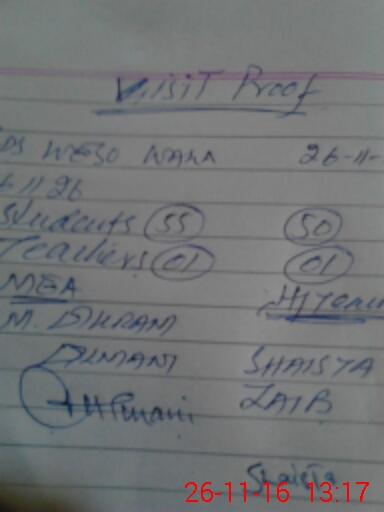 Visit Proof
WESO WALA 26-11-
11 26
Students 55 50
Teachers 01 01
MEA
M. IKRAM
DUMANI SHAISTA
ZAIB
Shaista
26-11-16 13:17